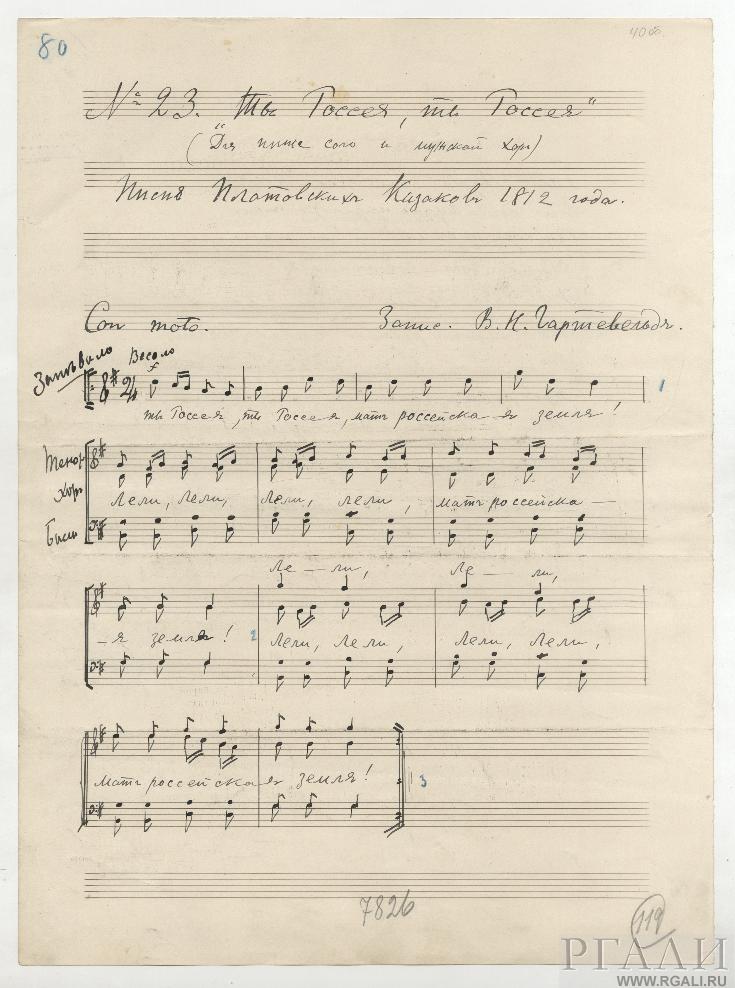 80
40об.
№ 23. "Ты Россея, ты Россея"
(Для соло и мужской хор)
Песнь Платовскихъ Казаковъ 1812 года.
Con moto.
Запис. В. Н. Гартевельдъ.
Запѣвало
Весело
f
2/4
1
ты Россея, ты Россея, мать российска я земля!
Тенор
Хор
Басы
Лели, Лели, Лели, лели, мать российска —
Ле — ли, Ле — ли,
— я земля! 2 Лели, Лели, Лели, Лели,
мать российска я земля! 3
7826
119
РГАЛИ
WWW.RGALI.RU